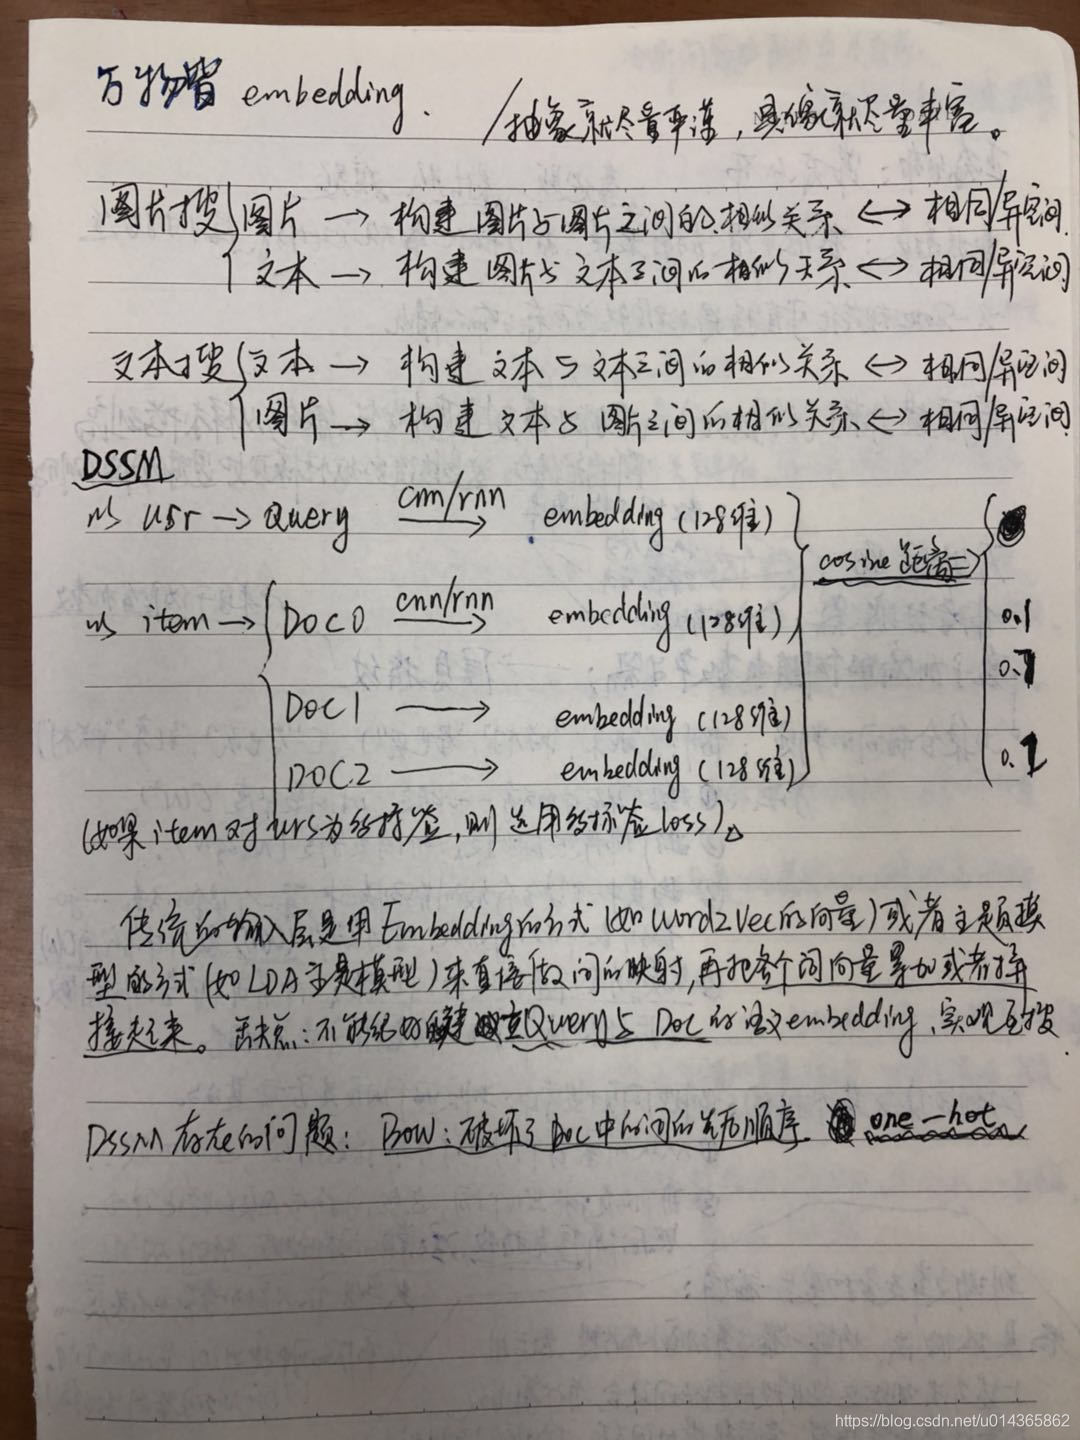 万物皆 embedding.
/抽象就尽量平薄，具像就尽量丰富。
图片搜{图片 → 构建图片与图片之间的相似关系 ↔ 相同/异空间
文本 → 构建图片与文本之间的相似关系 ↔ 相同/异空间
文本搜{文本 → 构建文本与文本之间的相似关系 ↔ 相同/异空间
图片 → 构建文本与图片之间的相似关系 ↔ 相同/异空间
DSSM
usr → Query cnn/rnn → embedding (128维)
cosine 距离 ⇒
item → { DOC0 cnn/rnn → embedding (128维) 0.1
0.7
DOC1 → embedding (128维)
DOC2 → embedding (128维) 0.2
(如果item对urs为多标签,则选用多标签loss)。
传统的输入层是用Embedding的方式(如Word2Vec的词向量)或者主题模
型的方式(如LDA主题模型)来直接做词的映射,再把各个词向量累加或者拼
接起来。缺点:不能很好的建立Query与Doc的语义embedding,实现互搜.
DSSM存在的问题: BOW:破坏了Doc中的词的先后顺序. one-hot
https://blog.csdn.net/u014365862